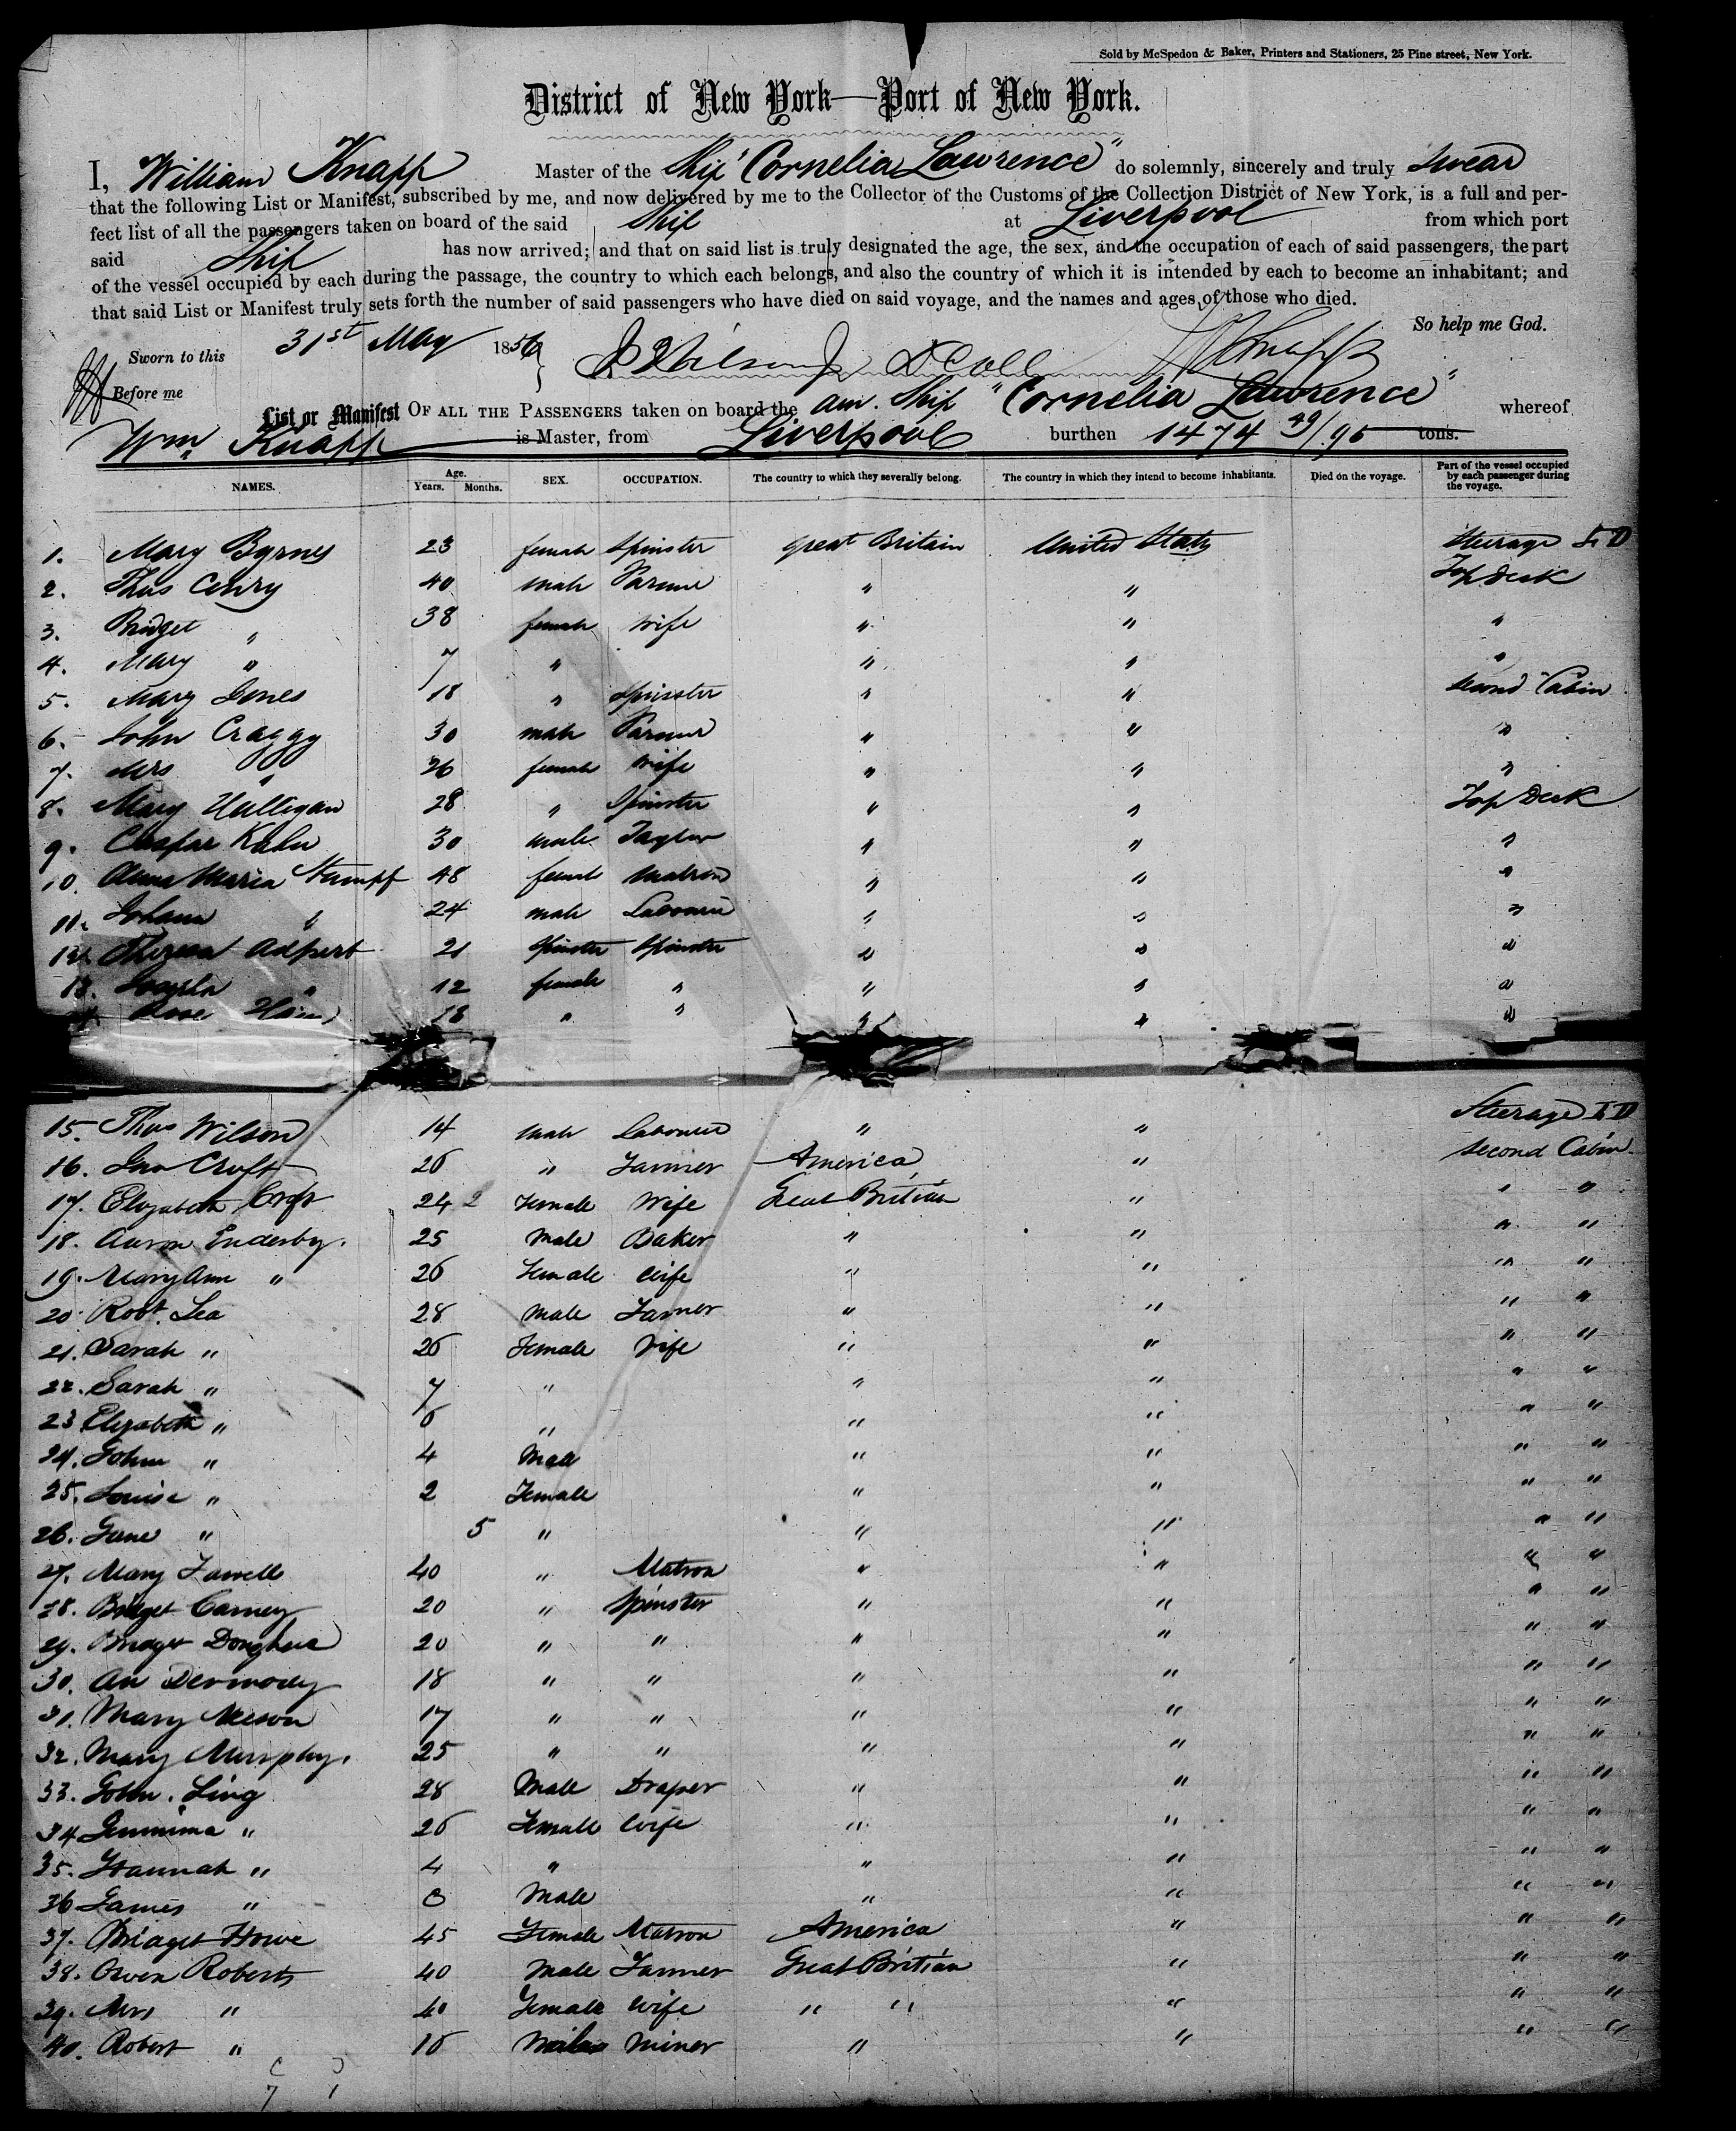 Sold by McSpedon & Baker, Printers and Stationers, 25 Pine street, New York.
District of New York—Port of New York.
I, William Knapp Master of the Ship "Cornelia Lawrence" do solemnly, sincerely and truly swear
that the following List or Manifest, subscribed by me, and now delivered by me to the Collector of the Customs of the Collection District of New York, is a full and per-
fect list of all the passengers taken on board of the said Ship at Liverpool from which port
said Ship has now arrived; and that on said list is truly designated the age, the sex, and the occupation of each of said passengers, the part
of the vessel occupied by each during the passage, the country to which each belongs, and also the country of which it is intended by each to become an inhabitant; and
that said List or Manifest truly sets forth the number of said passengers who have died on said voyage, and the names and ages of those who died.
So help me God.
Sworn to this 31st May 1856 Knapp
Before me
List or Manifest OF ALL THE PASSENGERS taken on board the am. Ship "Cornelia Lawrence" whereof
Wm. Knapp is Master, from Liverpool burthen 1474 49/95 tons.
NAMES. Age. Years. Months. SEX. OCCUPATION. The country to which they severally belong. The country in which they intend to become inhabitants. Died on the voyage. Part of the vessel occupied by each passenger during the voyage.
1. Mary Byrnes 23 female Spinster Great Britain United States Steerage L D
2. Thos 40 male Farmer " " Top Deck
3. Bridget " 38 female wife " " "
4. Mary " 7 " " " "
5. Mary Jones 18 " Spinster " " second Cabin
6. John Craggy 30 male Farmer " " "
7. Mrs " 26 female wife " " "
8. Mary Hulligan 28 " Spinster " " Top Deck
9. Caspar Kuhn 30 male Taylor " " "
10. Anna Maria Stumpf 48 female matron " " "
11. Johann " 24 male Labourer " " "
12. Theresa Adpert 21 Spinster Spinster " " "
13. " 12 female " " " "
14. Rose 18 " " " " "
15. Thos Wilson 14 male Labourer " " Steerage L D
16. Jno Croft 26 " Farmer America " second Cabin
17. Elizabeth Croft 24 2 Female Wife Great Britian " " "
18. Aaron Enderby. 25 Male Baker " " " "
19. Mary Ann " 26 Female Wife " " " "
20. Robt. Lea 28 Male Farmer " " " "
21. Sarah " 26 Female Wife " " " "
22. Sarah " 7 " " " " "
23 Elizabeth " 6 " " " " "
24. John " 4 Male " " " "
25. Louise " 2 Female " " " "
26. Jane " 5 " " " " "
27. Mary Farrell 40 " Matron " " " "
28. Bridget Carney 20 " Spinster " " " "
29. Bridget Donghue 20 " " " " " "
30. An Dermody 18 " " " " " "
31. Mary Neeson 17 " " " " " "
32. Mary Murphy. 25 " " " " " "
33. John. Ling 28 Male Draper " " " "
34 Jemmima " 26 Female Wife " " " "
35. Hannah " 4 " " " " "
36 James " 0 Male " " " "
37. Bridget Howe 45 Female Matron America " " "
38. Owen Roberts 40 Male Farmer Great Britian " " "
39. Mrs " 40 Female Wife " " " " "
40. Robert " 16 Male miner " " " "